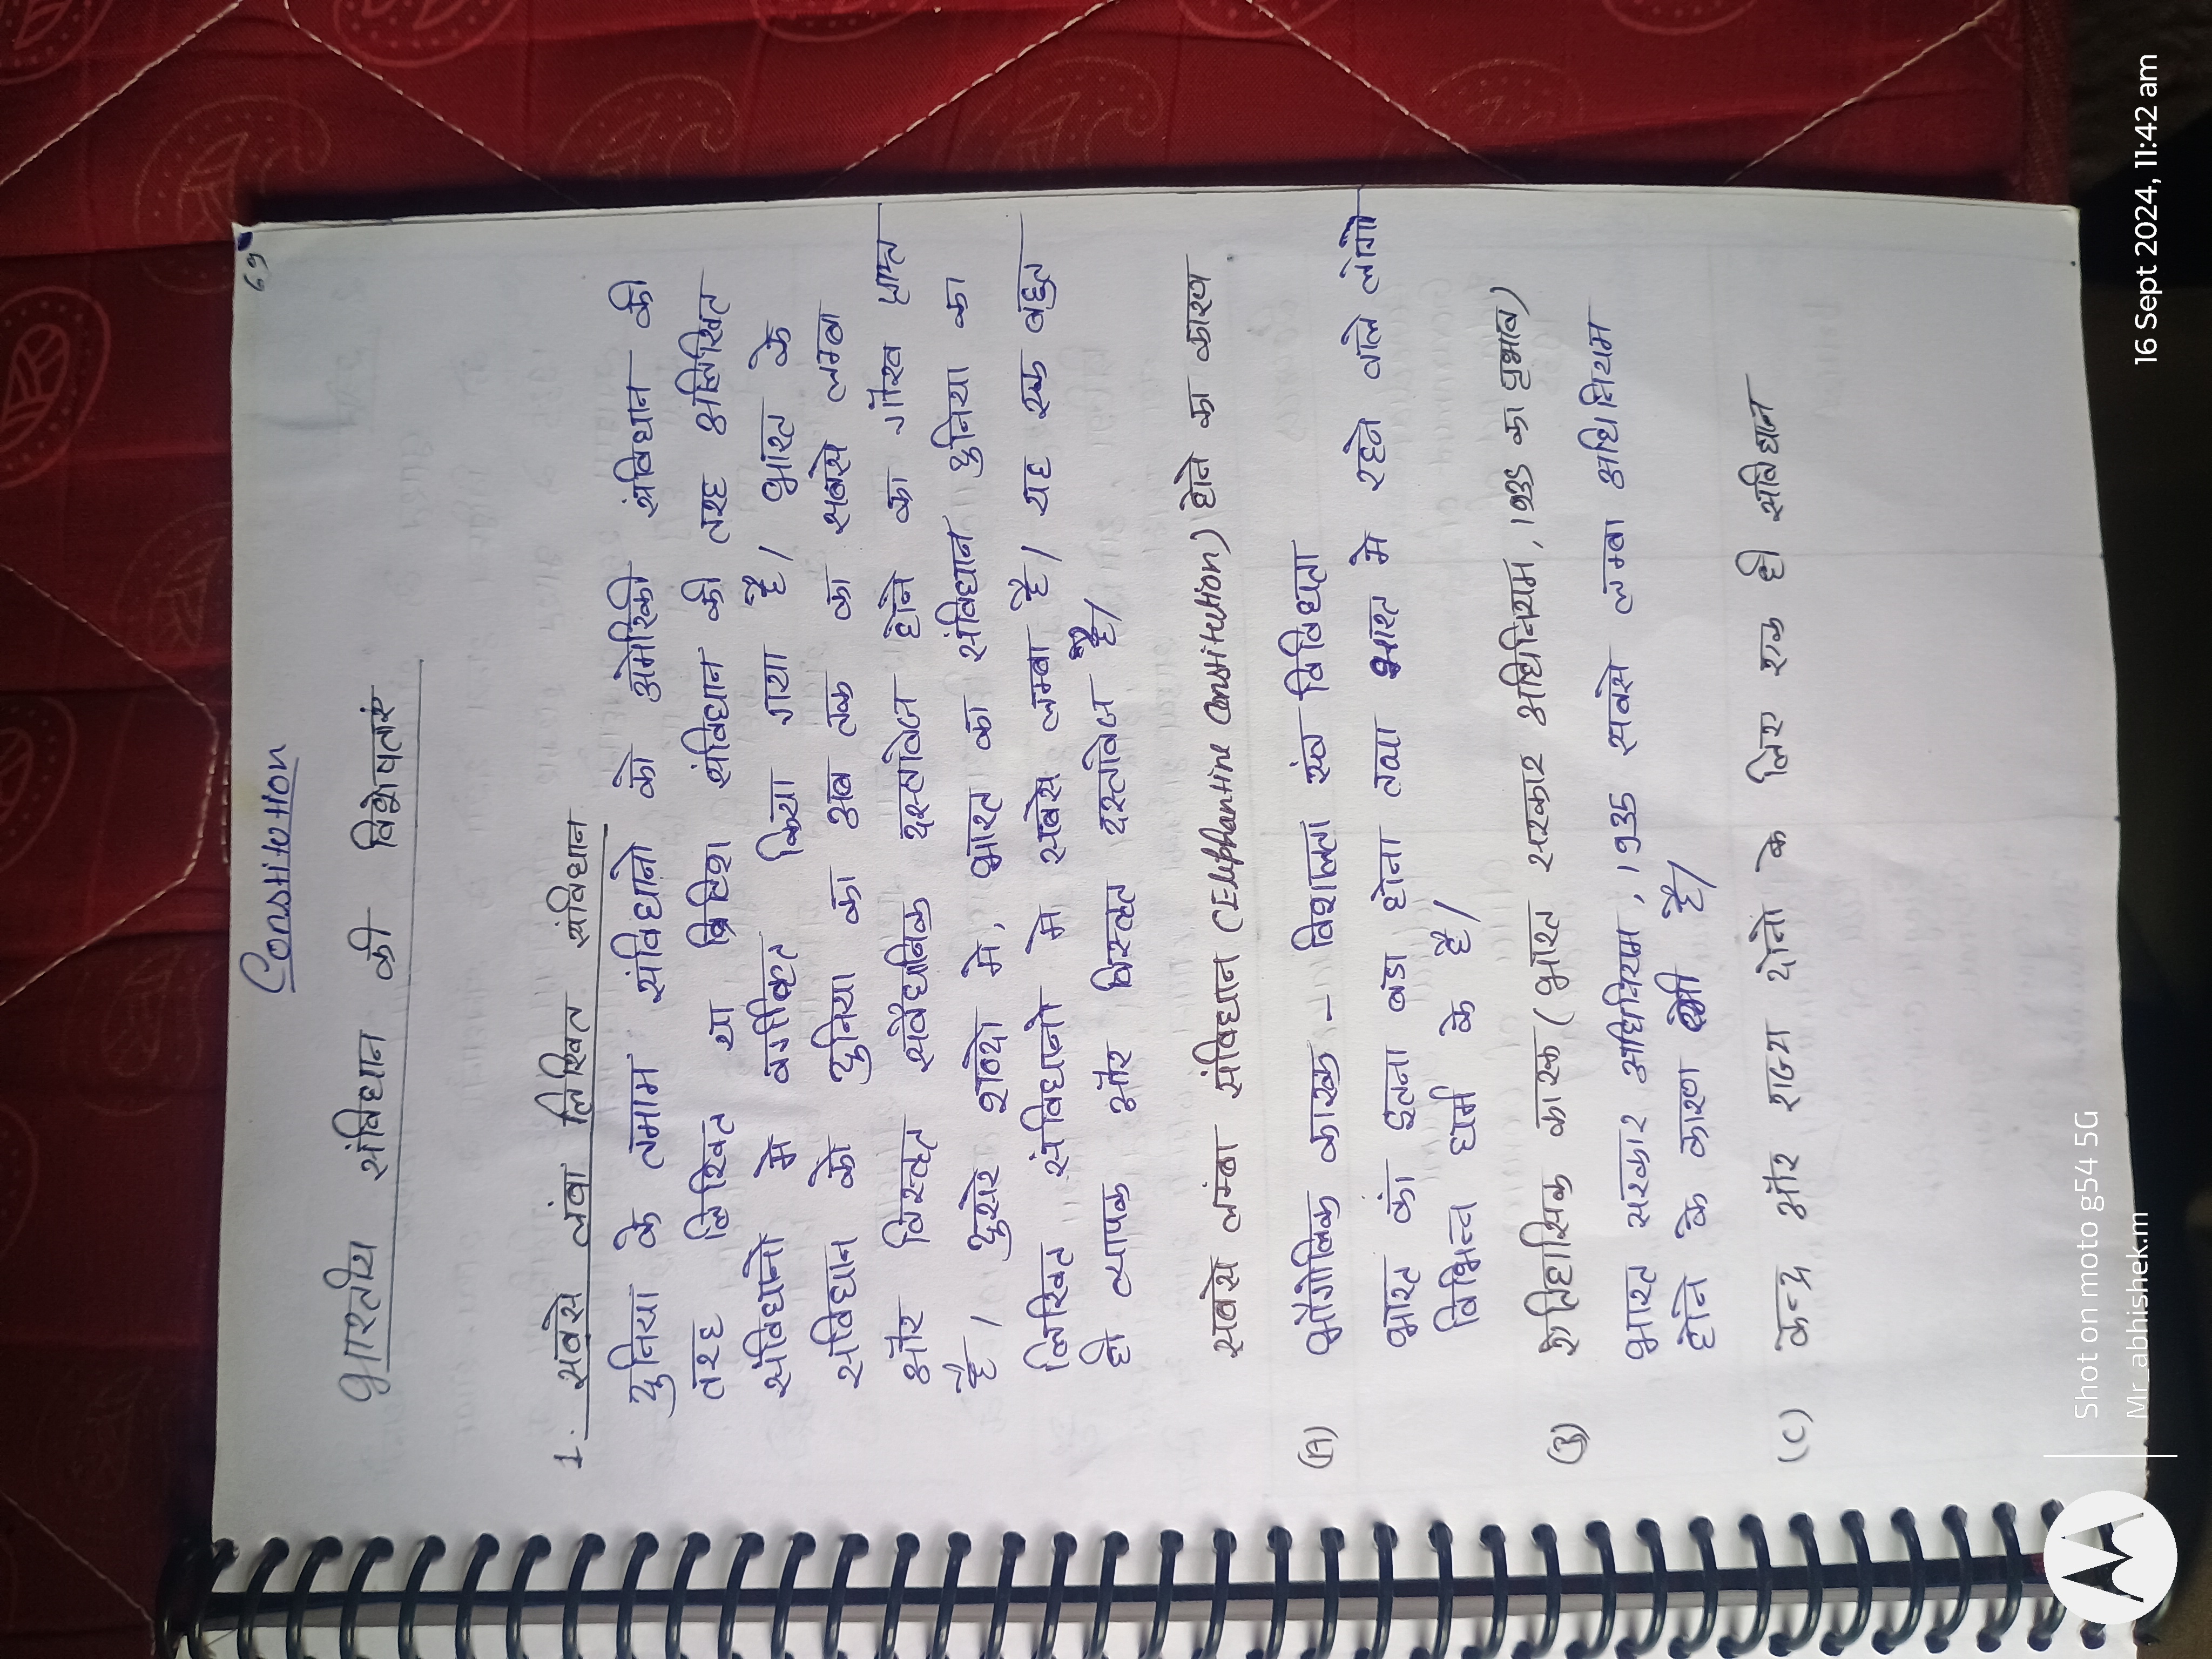 69
Constitution
भारतीय संविधान की विशेषताएं
1. सबसे लंबा लिखित संविधान
दुनिया के तमाम संविधानो को अमेरिकी संविधान की
तरह लिखित या ब्रिटिश संविधान की तरह अलिखित
संविधानो मे वर्गीकृत किया गया है। भारत के
संविधान को दुनिया का अब तक का सबसे लम्बा
और विस्तृत सवैधानिक दस्तावेज होने का गौरव प्राप्त
है। दुसरे शब्दो मे, भारत का संविधान दुनिया का
लिखित संविधानो मे सबसे लम्बा है। यह एक बहुत
ही व्यापक और विस्तृत दस्तावेज है।
सबसे लम्बा संविधान (Elephantine Constitution) होने का कारण
(A) भौगोलिक कारक - विशालता एंव विविधता
भारत का इतना बडा होना तथा भारत मे रहने वाले लोगो
विभिन्न धर्म के है।
(B) ऐतिहासिक कारक (भारत सरकार अधिनियम, 1935 का प्रभाव)
भारत सरकार अधिनियम, 1935 सबसे लम्बा अधिनियम
होने के कारण भी है।
(C) केन्द्र और राज्य दोनो के लिए एक ही संविधान
Shot on moto g54 5G
Mr_abhishek.m
16 Sept 2024, 11:42 am